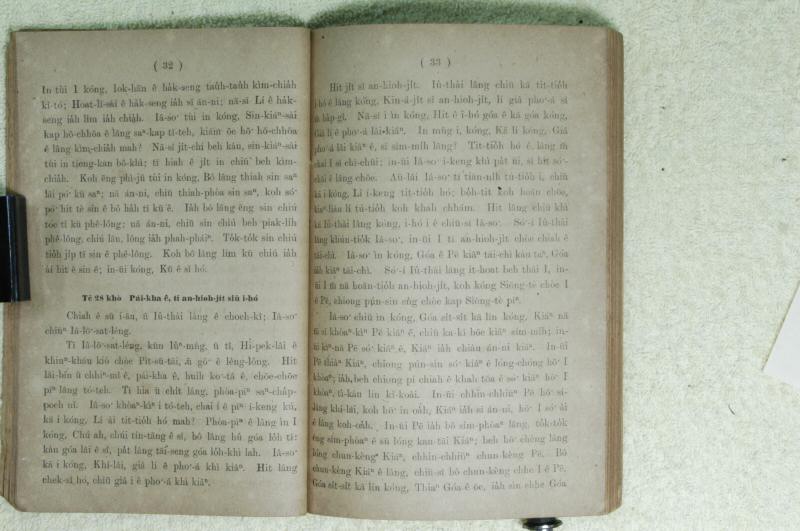 ( 32 )
In tùi I kóng, Iok-hān ê ha̍k-seng tau̍h-tau̍h kìm-chia̍h
kî-tó; Hoat-lī-sài ê ha̍k-seng ia̍h sī án-ni; nā-sī Lí ê ha̍k-
seng ia̍h lim ia̍h chia̍h. Iâ-so· tùi in kóng, Sin-kiáⁿ-sài
kap hō-chhōa ê lâng saⁿ-kap tī-teh, kiám ōe hō· hó-chhōa
ê lâng kìm-chia̍h mah? Nā-sī ji̍t-chí beh káu, sin-kiáⁿ-sài
tùi in tiong-kan bô-khì; tī hiah ê ji̍t in chiū beh kìm-
chia̍h. Koh ēng phì-jū tùi in kóng, Bô lâng thiah sin saⁿ
lâi pó· kū saⁿ; nā án-ni, chiū thiah-phòa sin saⁿ, koh só·
pó· hit tè sin ê bô ha̍h tī kū ê. Ia̍h bô lâng ēng sin chiú
tóe tī kū phê-lông; nā án-ni, chiū sin chiú beh piak-li̍h
phê-lông, chiú lāu, lông ia̍h phah-pháiⁿ. To̍k-to̍k sin chiú
tio̍h ji̍p tī sin phê-lông. Koh bô lâng lim kū chiú ia̍h
ài hit ê sin ê; in-ūi kóng, Kū ê sī hó.
Tē 28 khò Pái-kha ê, tī an-hioh-ji̍t siū i-hó
Chiah ê sū í-āu, ū Iû-thài lâng ê choeh-kî; Iâ-so·
chiūⁿ Iâ-lō·-sat-léng.
Tī Iâ-lō·-sat-léng, kūn Iûⁿ-mn̂g, ū tî, Hi-pek-lâi ê
khiuⁿ-kháu kiò chòe Pit-sū-tāi, ū gō· ê lêng-lông. Hit
lāi-bīn ū chhiⁿ-mî ê, pái-kha ê, huih ko·-tá ê, chōe-chōe
pīⁿ lâng tó-teh. Tī hia ū chi̍t lâng, phòa-pīⁿ saⁿ-cha̍p-
poeh nî. Iâ-so· khòaⁿ-kìⁿ i tó-teh, chai í ê pīⁿ í-keng kú,
kā i kóng, Lí ài tit-tio̍h hó mah? Phòa-pīⁿ ê lâng ìn I
kóng, Chú ah, chúi tín-tāng ê sî, bô lâng hû góa lo̍h tî:
kàn góa lâi ê sî, pa̍t lâng tāi-seng góa lo̍h-khì lah. Iâ-so·
kā i kóng, Khí-lâi, giâ lí ê pho·-á khì kiâⁿ. Hit lâng
chek-sî hó, chiū giâ i ê pho·-á khì kiâⁿ.
( 33 )
Hit ji̍t sī an-hioh-ji̍t. Iû-thài lâng chiū kā tit-tio̍h
i-hó ê lâng kóng, Kin-á-ji̍t sī an-hioh-ji̍t, lí giâ pho·-á sī
ū ha̍p-gî. Nā-sī i ìn kóng, Hit ê i-hó góa ê kā góa kóng,
Giâ lí ê pho·-á lâi-kiâⁿ. In mn̄g i, kóng, Kā lí kóng, Giâ
pho·-á lâi kiâⁿ ê, sī sím-mi̍h lâng? Tit-tio̍h hó ê lâng m̄
chai I sī chi-chūi; in-ūi Iâ-so· í-keng khì pa̍t ūi, sī hit só·-
chāi ê lâng chōe. Āu-lâi Iâ-so· tī tiān-nih tú-tio̍h i, chiū
kā i kóng, Lí í-keng tit-tio̍h hó; bo̍h-tit koh hoān chōe,
kiaⁿ-liáu lí tú-tio̍h koh khah chhám. Hit lâng chiū khì
kā Iû-thài lâng kóng, i-hó i ê chiū-sī Iâ-so·. Só·-í Iû-thài
lâng khún-tio̍k Iâ-so·, in-ūi I tī an-hioh-ji̍t chòe chiah ê
tāi-chì. Iâ-so· ìn kóng, Góa ê Pē kiâⁿ tāi-chì kàu taⁿ, Góa
ia̍h kiâⁿ tāi-chì. Só·-í Iû-thài lâng it-hoat beh thâi I, in-
ūi I m̄ nā hoān-tio̍h an-hioh-ji̍t, koh kóng Siōng-tè chòe I
ê Pē, chiong pún-sin éng chòe kap Siōng-tè pîⁿ.
Iâ-so· chiū ìn kóng, Góa si̍t-si̍t kā lín kóng, Kiáⁿ nā
m̄ sī khòaⁿ-kìⁿ Pē kiâⁿ ê, chiū ka-kī bōe kiâⁿ sím-mi̍h; in-
ūi kìⁿ-nā Pē só· kiâⁿ ê, Kiáⁿ ia̍h chiàu án-ni kiâⁿ. In-ūi
Pē thiàⁿ Kiáⁿ, chiong pún-sin só· kiâⁿ ê lóng-chóng hō· I
khòaⁿ; ia̍h beh chiong pí chiah ê khah tōa ê só· kiâⁿ hō· I
khòaⁿ, tì-kàu lín kî-koài. In-ūi chhin-chhiūⁿ Pē hō· sí-
lâng khí-lâi, koh hō· in oa̍h, Kiáⁿ ia̍h sī án-ni, hō· I só· ài
ê lâng koh-oa̍h. In-ūi Pē ia̍h bô sím-phòaⁿ lâng, to̍k-to̍k
ēng sím-phòaⁿ ê sū lóng kau tāi Kiáⁿ; beh hō· chèng lâng
lóng chun-kèng Kiáⁿ, chhin-chhiūⁿ chun-kèng Pē. Bô
chun-kèng Kiáⁿ ê lâng, chiū-sī bô chun-kèng chhe I ê Pē.
Góa si̍t-si̍t kā lín kóng, Thiaⁿ Góa ê ōe, ia̍h sìn chhe Góa